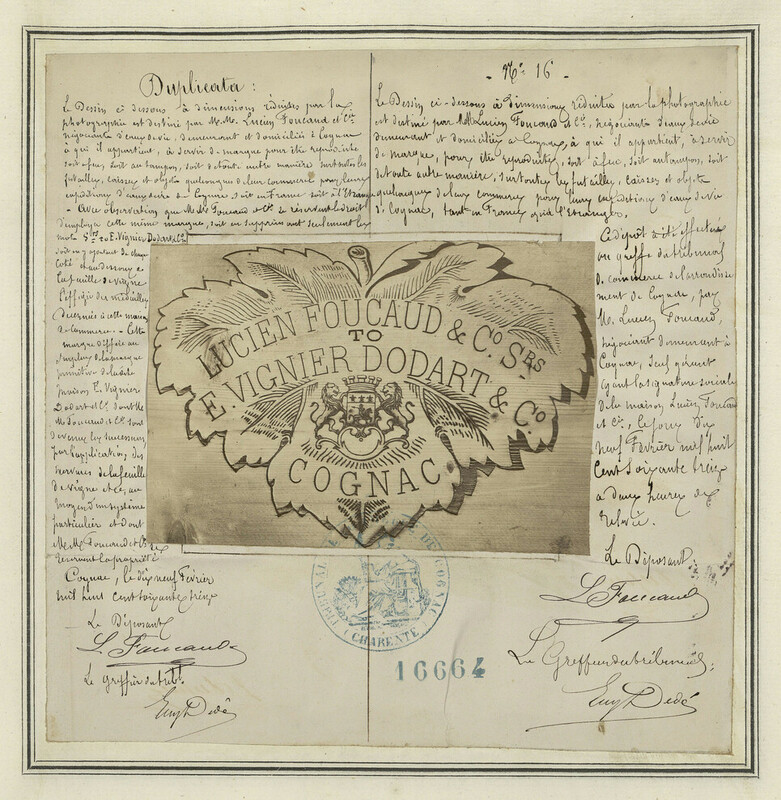 Duplicata :
Le Dessin ci dessous à dimensions réduites par la
photographie est destiné par M.M. Lucien Foucaud et Cie,
négociants d'eaux de vie, demeurant et domiciliés à Cognac
à qui il appartient, à servir de marque pour être reproduite
soit à feu, soit au tampon, soit de toute autre manière sur toutes les
futailles, caisses et objets quelconques de leur commerce pour leurs
expéditions d'eaux de vie de Cognac, soit en France soit à l'Etranger
- Avec observation que MM. Foucaud et Cie se réservent le droit
d'employer cette même marque, soit en supprimant seulement les
mots Srs to E. Vignier Dodart & Co
soit en y ajoutant de chaque
côté et au dessous de
la feuille de vigne
l'effigie des médailles
décernées à cette maison
de commerce. - Cette
marque diffère au
surplus de la marque
primitive de la dite
maison E. Vignier
Dodart et Cie dont MM.
Foucaud et Cie sont
devenus les successeurs
par l'application des
nervures de la feuille
de vigne et ce, au
moyen d'un système
particulier et dont
MM. Foucaud et Cie se
réservent la propriété.
Cognac, le dix neuf Février
mil huit cent soixante treize
Le Déposant
L. Foucaud
Le Greffier du tribl.
Eug Dedé
- No 16 -
Le Dessin ci-dessous à dimensions réduites par la photographie
est destiné par MM Lucien Foucaud et Cie, négociants d'eaux de vie
demeurant et domiciliés à Cognac, à qui il appartient, à servir
de marque, pour être reproduite, soit à feu, soit au tampon, soit
de toute autre manière, sur toutes les futailles, caisses et objets
quelconques de leur commerce pour leurs expéditions d'eaux de vie
de Cognac, tant en France qu'à l'Etranger.
Ce dépôt a été effectué
au greffe du tribunal
de commerce de l'arrondisse
ment de Cognac, par
M. Lucien Foucaud,
négociant demeurant à
Cognac, seul gérant
ayant la signature sociale
de la maison Lucien Foucaud
et Cie, le jour dix
neuf Février mil huit
cent soixante treize
à deux heures de
relevée.
Le Déposant,
L. Foucaud
Le Greffier du tribunal :
Eug Dedé
LUCIEN FOUCAUD & Co. SRS
TO
E. VIGNIER DODART & Co
COGNAC
TRIBUNAL DE COMMERCE DE COGNAC
(CHARENTE)
16664